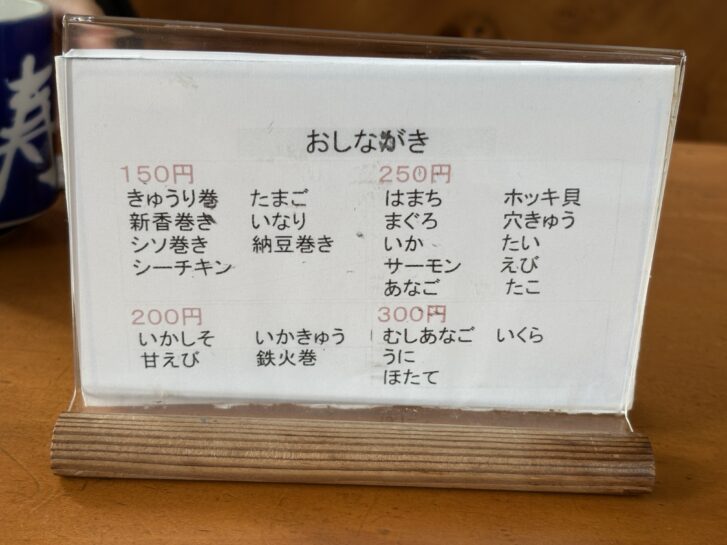 寿
おしながき
150円
きゅうり巻 たまご
新香巻き いなり
シソ巻き 納豆巻き
シーチキン
250円
はまち ホッキ貝
まぐろ 穴きゅう
いか たい
サーモン えび
あなご たこ
200円
いかしそ いかきゅう
甘えび 鉄火巻
300円
むしあなご いくら
うに
ほたて